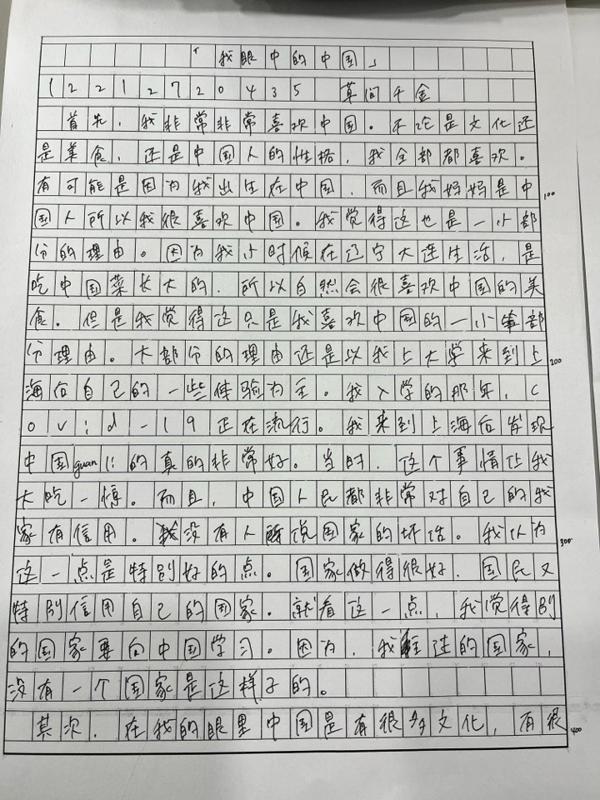 「我眼中的中国」
12212720435 草间千金
首先，我非常非常喜欢中国。不论是文化还
是美食，还是中国人的性格，我全部都喜欢。
有可能是因为我出生在中国，而且我妈妈是中
100
国人所以我很喜欢中国。我觉得这也是一小部
分的理由。因为我小时候在辽宁大连生活，是
吃中国菜长大的，所以自然会很喜欢中国的美
食。但是我觉得这只是我喜欢中国的一小部
分理由。大部分的理由还是以我上大学来到上
200
海后自己的一些体验为主。我入学的那年，c
ovid-19正在流行。我来到上海后发现
中国guanli的真的非常好。当时，这个事情让我
大吃一惊。而且，中国人民都非常对自己的我
家有信用。没有人说国家的坏话。我认为
300
这一点是特别好的点。国家做得很好，国民又
特别信用自己的国家。就看这一点，我觉得别
的国家要向中国学习。因为，我住过的国家，
没有一个国家是这样子的。
其次，在我的眼里中国是有很多文化，有很
400